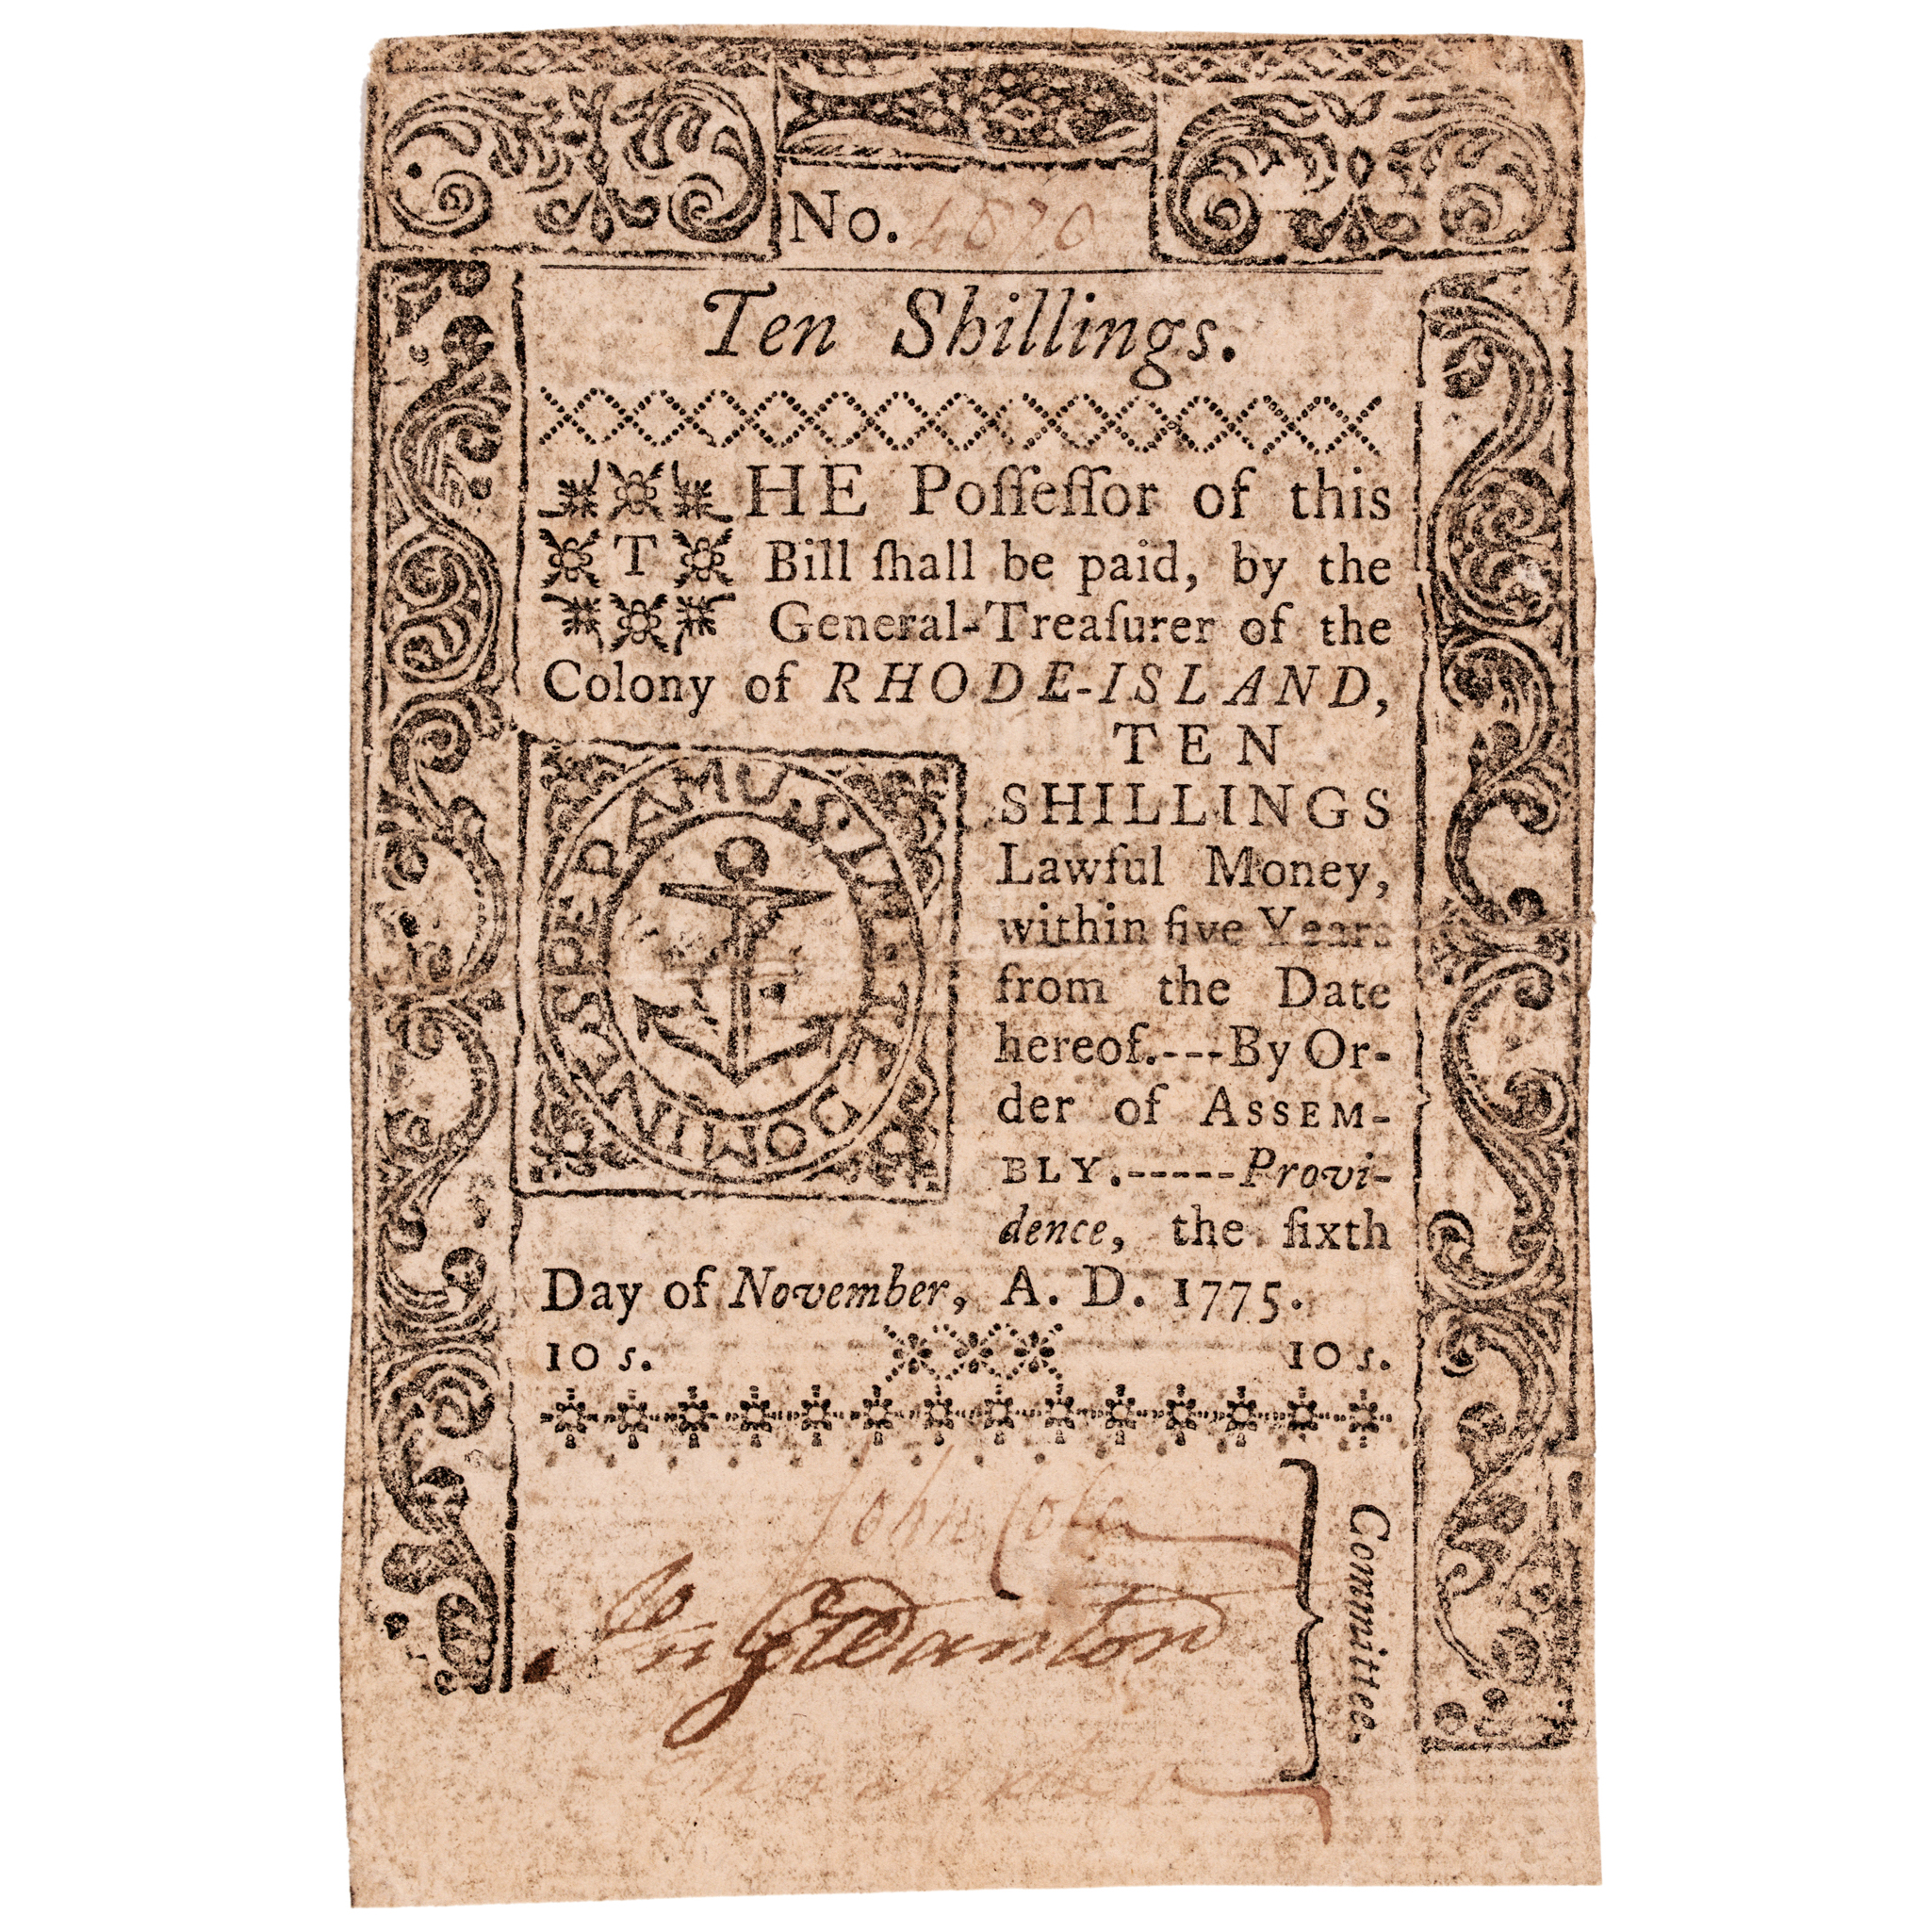 No. 4070
Ten Shillings.
THE Poſſeſſor of this
Bill ſhall be paid, by the
General-Treaſurer of the
Colony of RHODE-ISLAND,
TEN
SHILLINGS
Lawful Money,
within five Years
from the Date
hereof.---By Or-
der of ASSEM-
BLY.-----Provi-
dence, the ſixth
Day of November, A. D. 1775.
IN TE DOMINE SPERAMUS
10 s. 10 s.
John Cole
Committee.